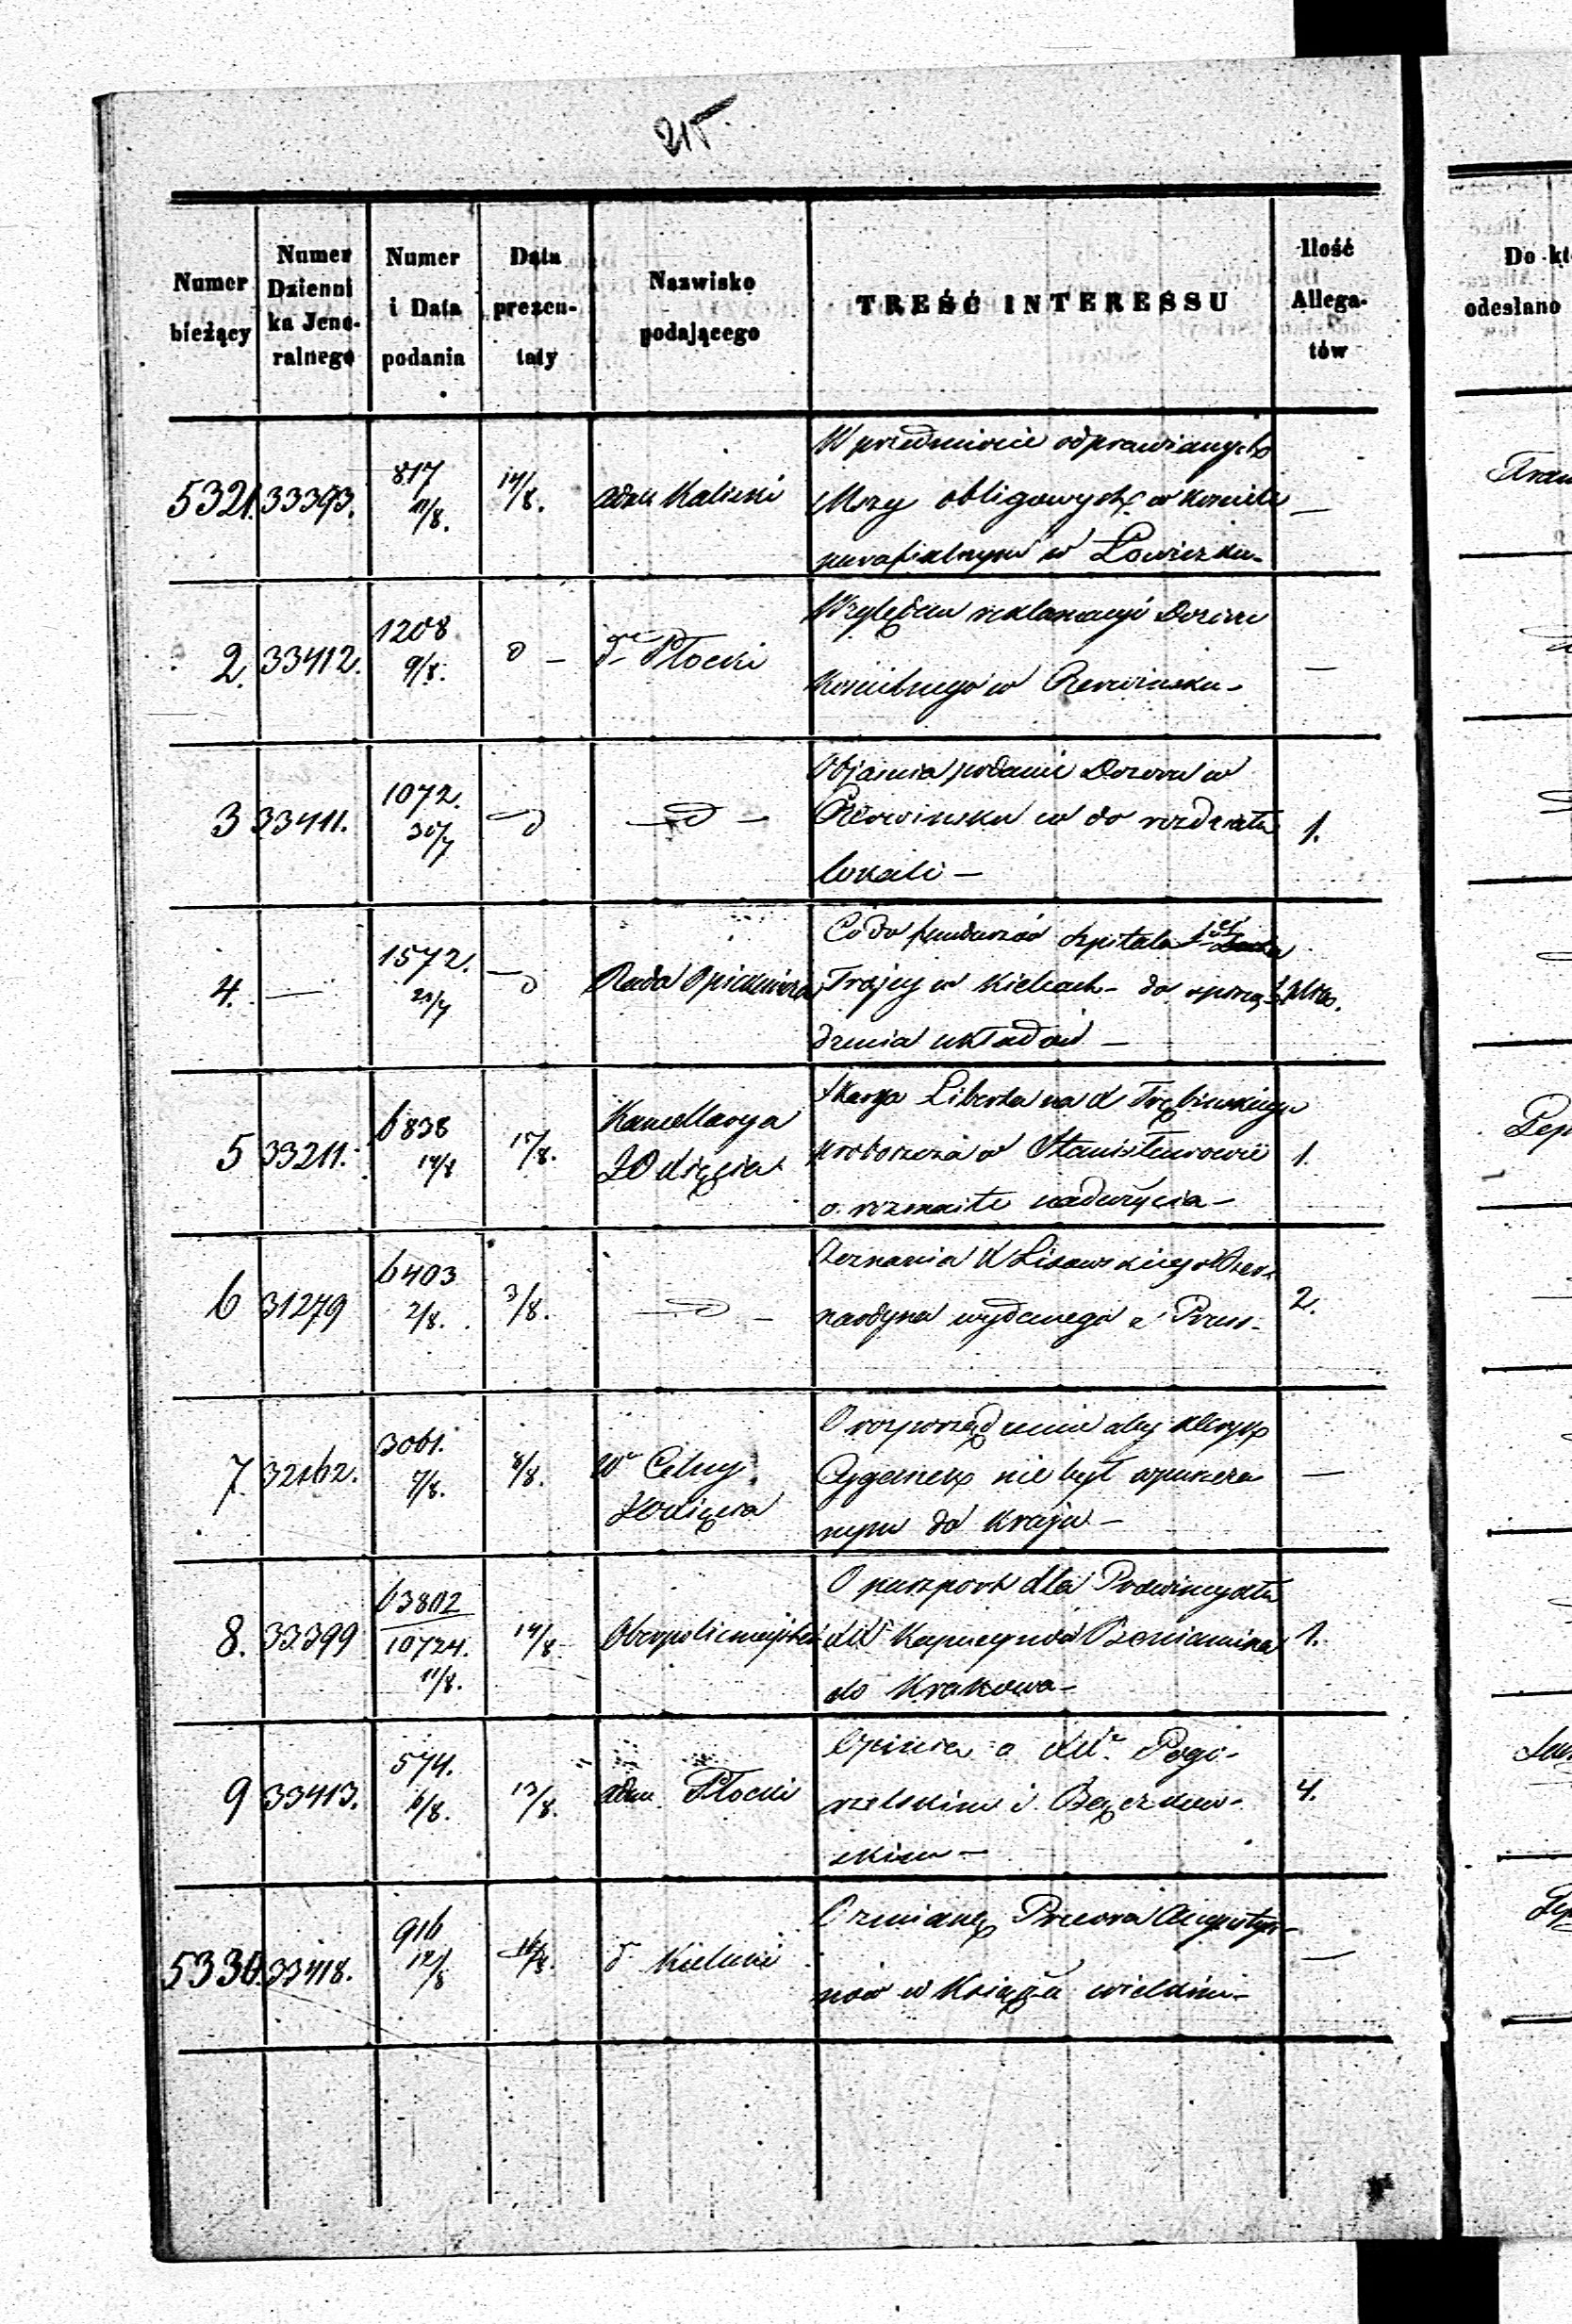 215
Numer bieżący
Numer Dzienni ka Jene- ralnego
Numer i Data podania
Data prezen- taty
Nazwisko podającego
TREŚĆ INTERESSU
Ilość Allega- tów
Do kt
odesłano
5321. 33393. 817 14/8. adm Kaliski W przedmiocie odprawianych
Mszy obligowych w kościele —
parafialnym w Łowiczku - Tran
2. 33412. 1208 9/8. d — Płocki Względem reklamacyi Dozoru
Kościelnego w Czerwińsku - —
3 33411. 1072. 30/7 d — d — Objaśnia podanie Dozoru w
Czerwińsku co do rozdziału 1.
lokali —
4. — 1572. 21/7 — d Rada Opiekuńcza Co do funduszów szpitala
Trójcy w Kielcach - do sporzą
dzenia układów —
5 33211. 6838 14/8 15/8. Kancellarya JO Księcia Skarga Liberta na
Proboszcza w Stanisławowie 1.
o rozmaite nadużycia -
6 31279 6403 2/8. 3/8. — d — Zeznania X Lisowskiego Ber-
nardyna wydanego z Prus - 2.
7. 32162. 3061. 7/8. 8/8. Celny O rozporządzenie aby
nie był wpuszcza —
nym do Kraju —
8. 33399 63802
10724. 11/8. 14/8 Oberpolicmajster O paszport dla Prowincyała
Kapucynów Beniamina 1.
do Krakowa -
9 33413. 574. 6/8. 13/8. adm. Płocki Opinia o
rzelskim i 4.
skim —
5330. 33418. 916 12/8 d Kielecki O zmianę Przeora Augustya-
nów w Książu wielkim - —